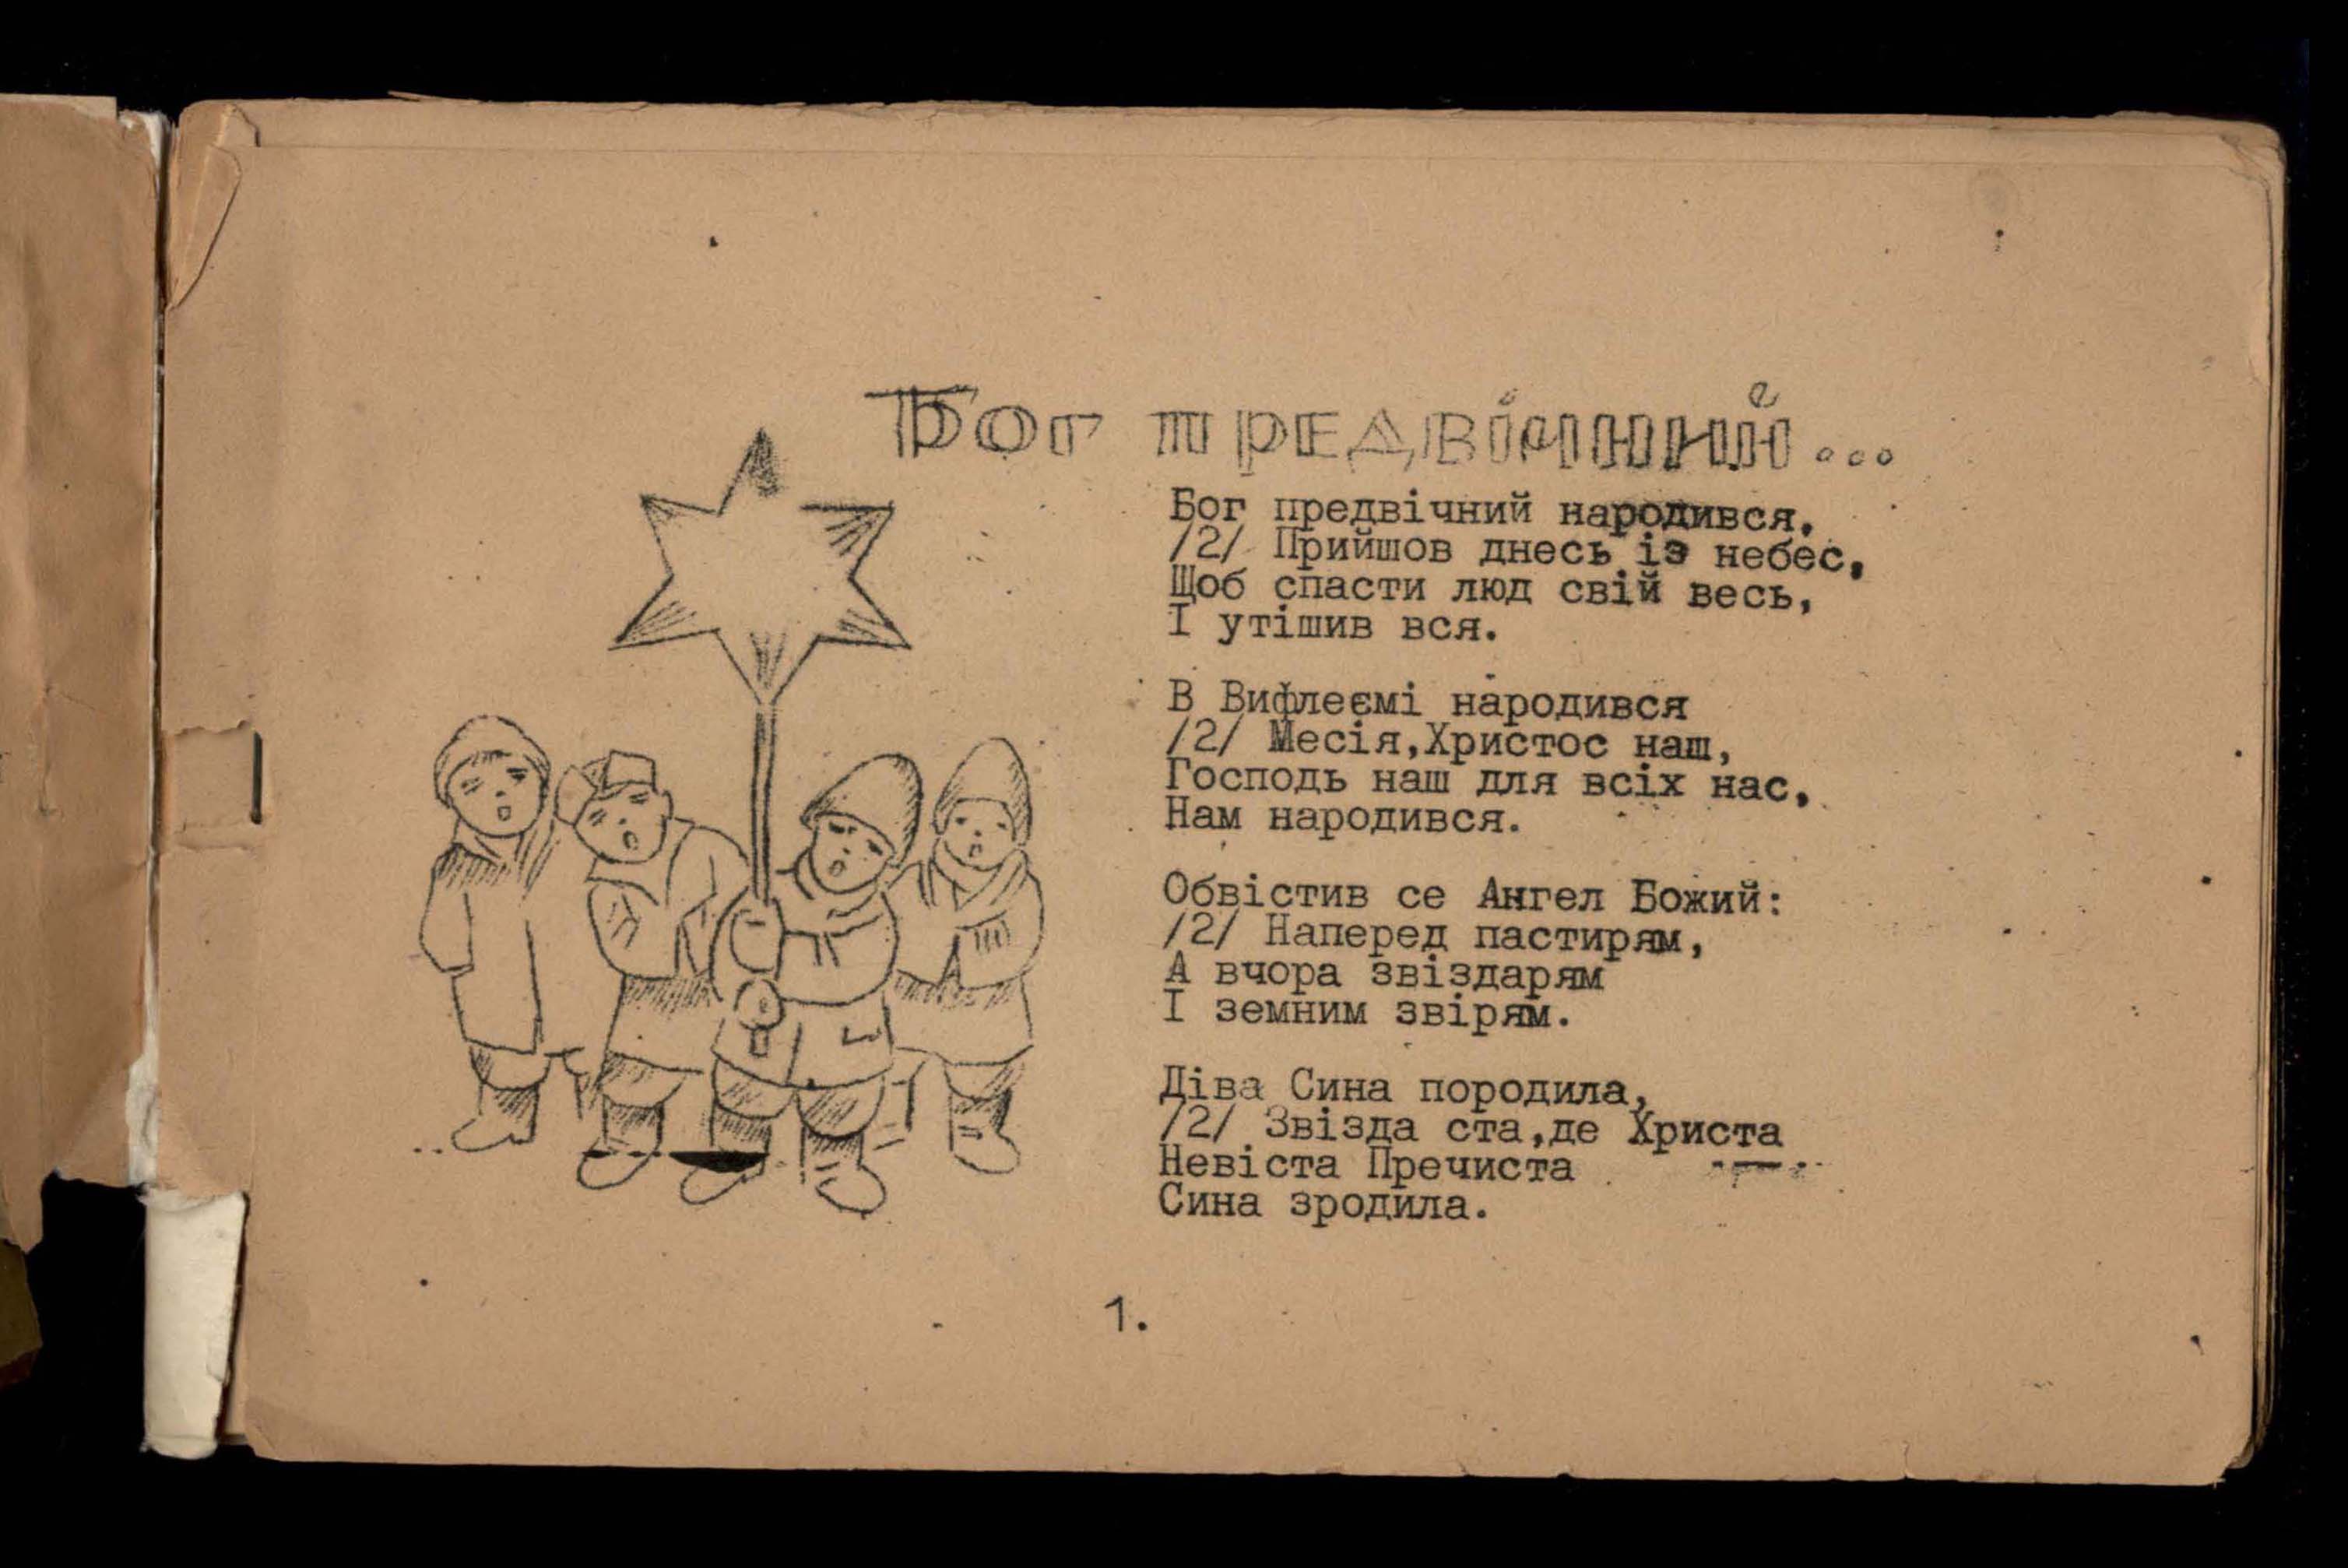 Бог предвічний...
Бог предвічний народився,
/2/ Прийшов днесь із небес,
Щоб спасти люд свій весь,
І утішив вся.
В Вифлеємі народився
/2/ Месія,Христос наш,
Господь наш для всіх нас,
Нам народився.
Обвістив се Ангел Божий:
/2/ Наперед пастирям,
А вчора звіздарям
І земним звірям.
Діва Сина породила,
/2/ Звізда ста,де Христа
Невіста Пречиста
Сина зродила.
1.